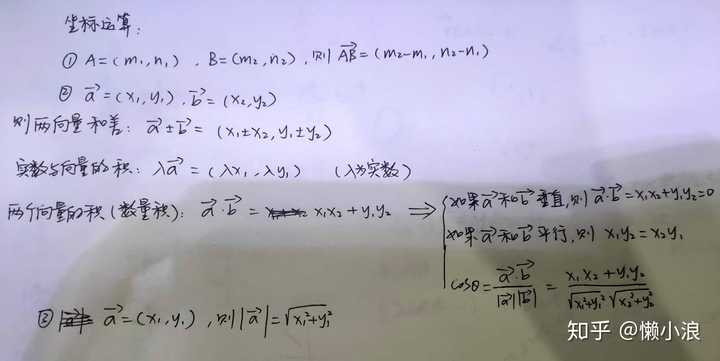 坐标运算:
① A=(m₁,n₁) , B=(m₂,n₂) , 则 $\overrightarrow{AB}$=(m₂-m₁, n₂-n₁)
② $\vec{a}$=(x₁,y₁), $\vec{b}$=(x₂,y₂)
则两向量和差: $\vec{a}$±$\vec{b}$=(x₁±x₂, y₁±y₂)
实数与向量的积: λ$\vec{a}$=(λx₁, λy₁) (λ为实数)
两个向量的积(数量积): $\vec{a}$·$\vec{b}$ = x₁x₂+y₁y₂ ⟹
如果$\vec{a}$和$\vec{b}$垂直,则$\vec{a}$·$\vec{b}$=x₁x₂+y₁y₂=0
如果$\vec{a}$和$\vec{b}$平行,则 x₁y₂=x₂y₁
cosθ=$\frac{\vec{a}·\vec{b}}{|\vec{a}||\vec{b}|}$ = $\frac{x_1x_2+y_1y_2}{\sqrt{x_1^2+y_1^2}\sqrt{x_2^2+y_2^2}}$
③ $\vec{a}$=(x₁,y₁) , 则|$\vec{a}$|=$\sqrt{x_1^2+y_1^2}$
知乎 @懒小浪